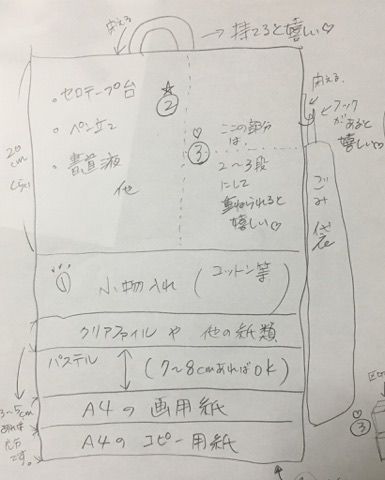 使える
→持てると嬉しい♡
・セロテープ台
☆②
・ペン立て
・書道液
他
20cmくらい
♡③
この部分は、
2〜3段
にして
重ねられると
嬉しい♡
使える
フックが
あると
嬉しい♡
ごみ袋
① 小物入れ (コットン等)
クリアファイルや他の紙類
パステル (7〜8cmあればOK)
3〜5cm
あれば
です。
A4の画用紙
A4のコピー用紙
♡③